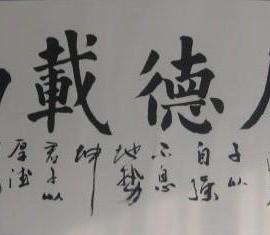 德載
子以
自强
不息
地勢
坤
君子以
厚德